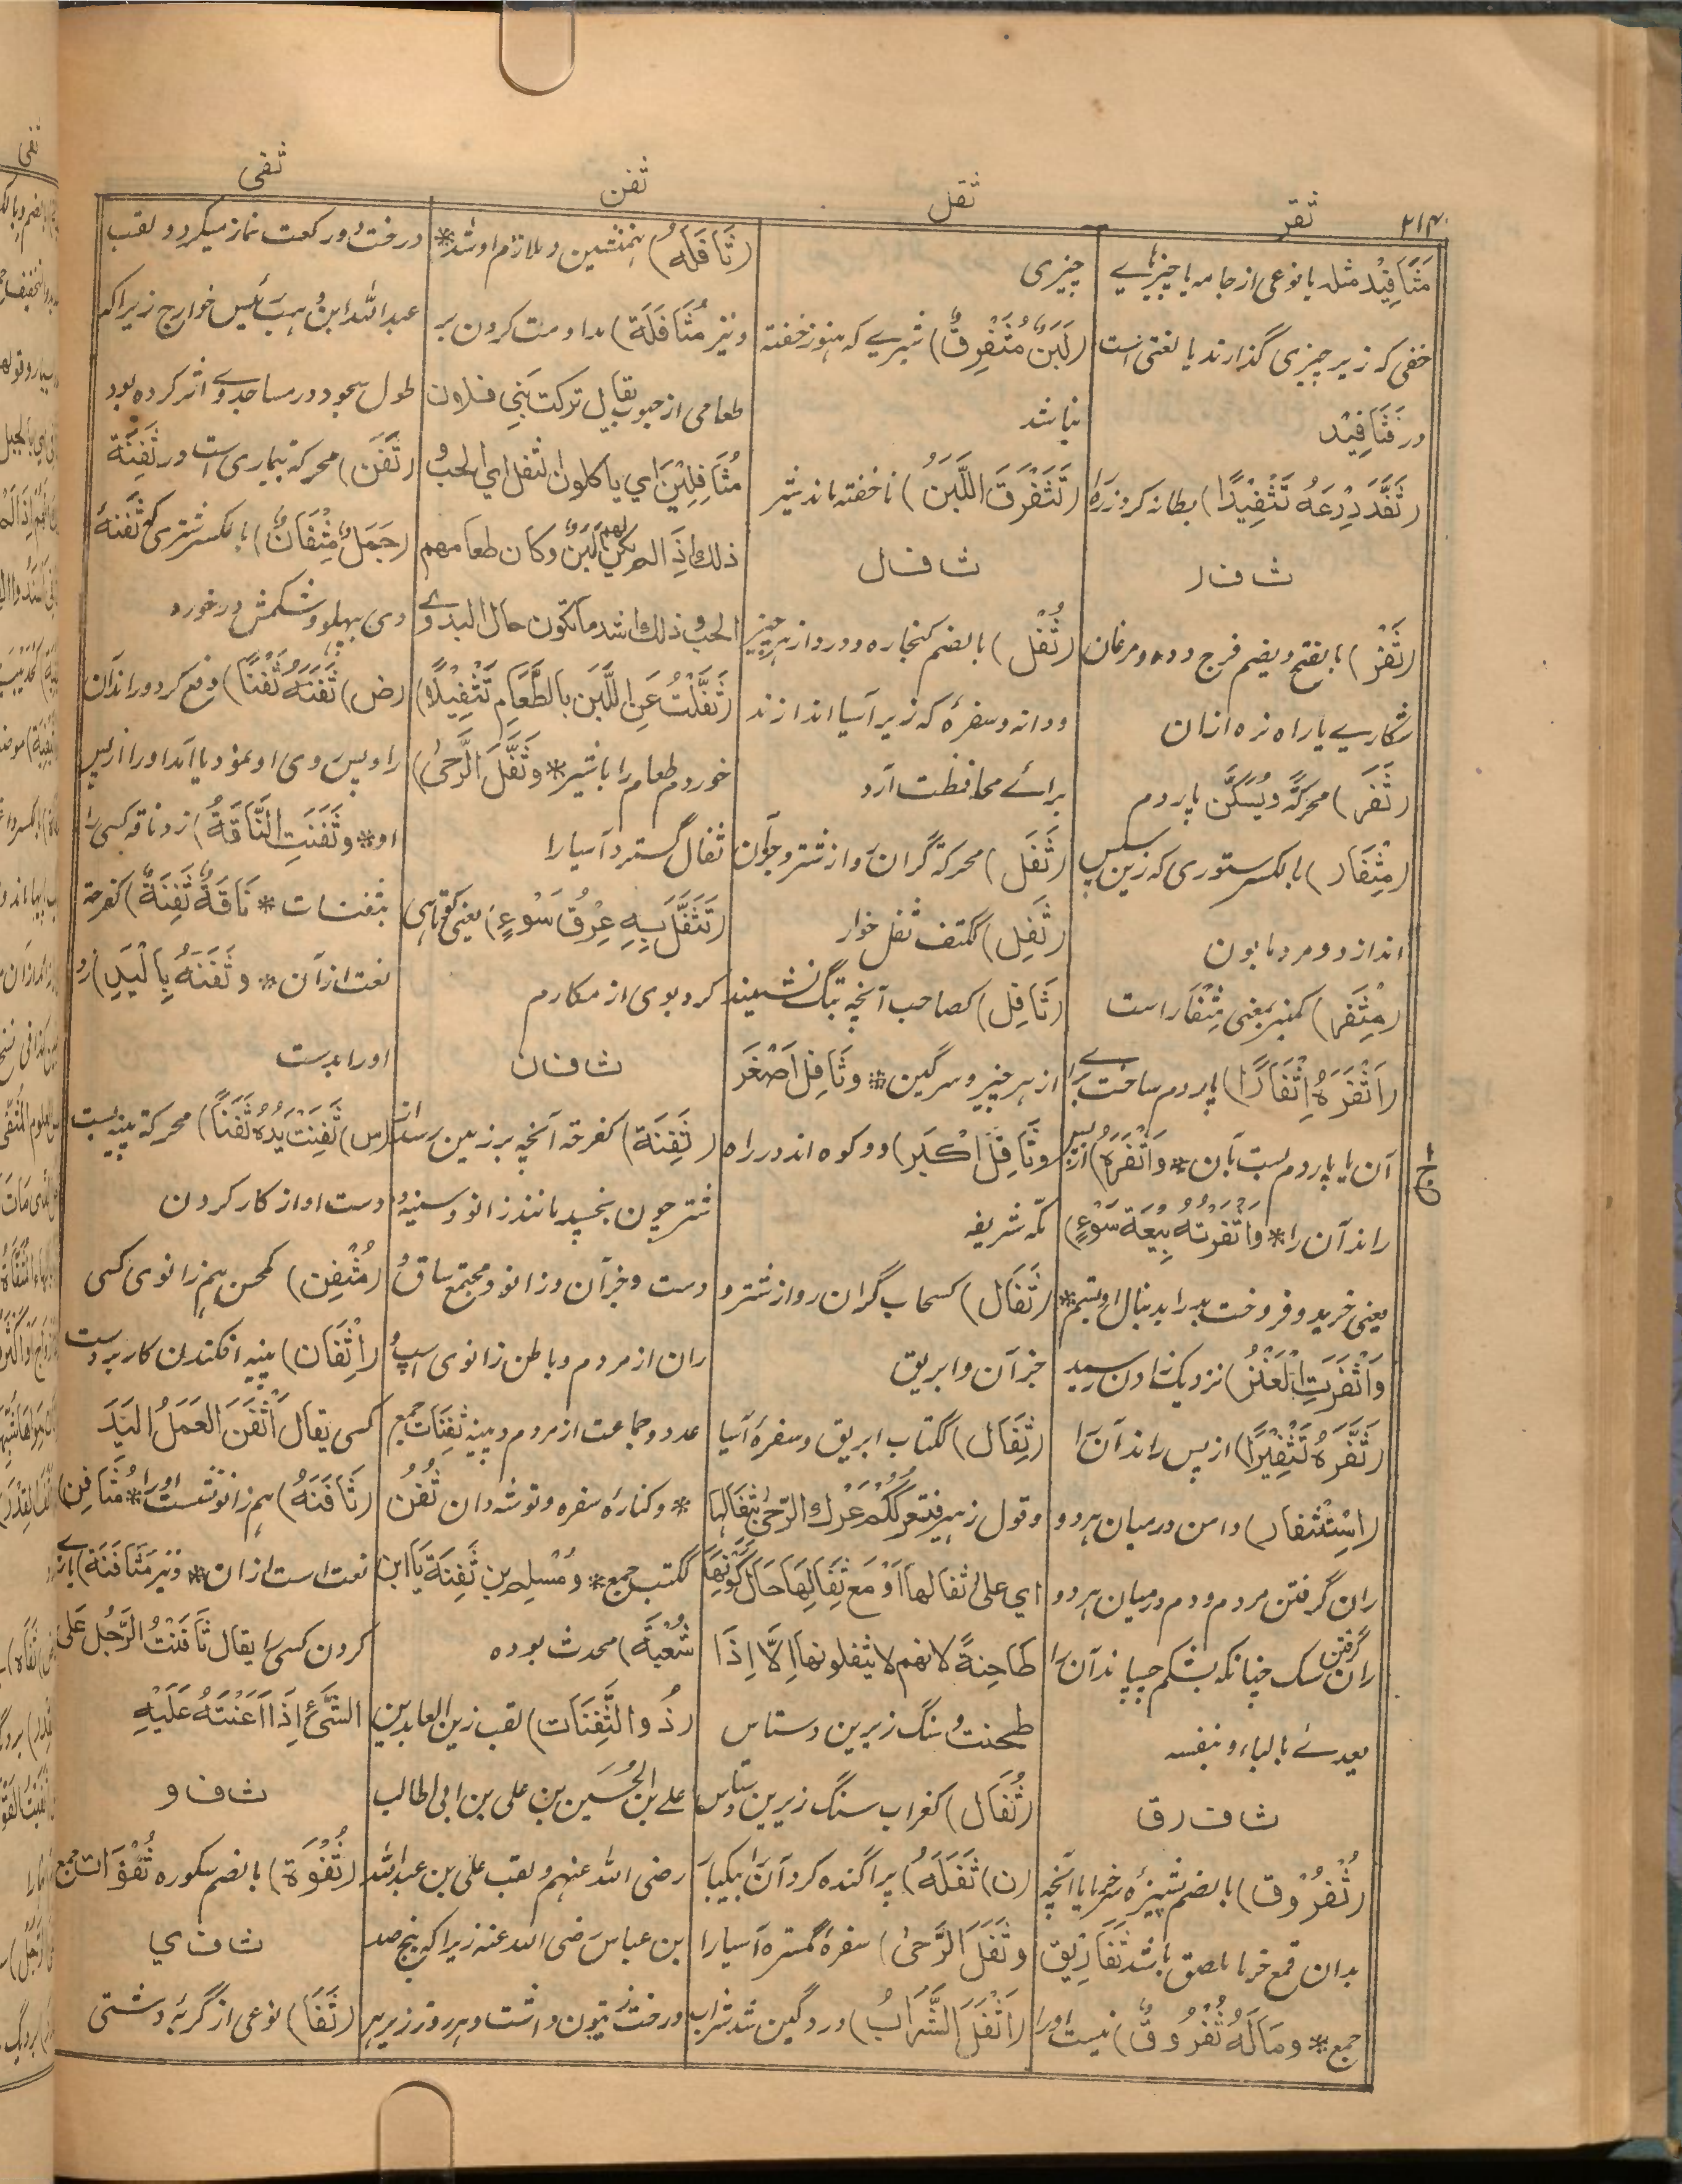 ۲۱۴
ثفر
ثفل
ثفن
ثفی
مَثَافِیْد مثله یا نوعی از جامه یا چیزهاے
خفی که زیر چیزی گذارند یا لغتی است
در فَثَافِیْد
(ثَفَّدَ دِرْعَهُ تَثْفِیْدًا) بطانه کرد زره را
ث ف ر
(ثَفْر) بالفتح ویضم فرج دده و مرغان
شکارے یا راه نره ازان
(ثَفَر) محرکةً ویُسَکَّن پاردم
(مِثْفَار) بالکسر ستوری که زین سپس
اندازد و مرد مابون
(مِثْفَر) کمنبر بمعنی مِثْفَار است
(اَثْفَرَهُ اِثْفَارًا) پاردم ساخت براے
آن یا پاردم بست بآن * وَاَثْفَرَهُ) از پس
راند آن را * وَاَثْفَرْتُهُ بِیْعَةَ سَوْءٍ)
یعنی خرید و فروخت بد را بدنبال او بستم *
وَاَثْفَرَتِ الْعَنْزُ) نزدیک زادن رسید
(ثَفَّرَهُ تَثْفِیْرًا) از پس راند آن را
(اِسْتِثْفَار) دامن درمیان هر دو
ران گرفتن مردم و دم درمیان هر دو
ران گرفتن سک چنانکه بشکم چسپاند آن را
یعدے بالباء و بنفسه
ث ف ر ق
(ثُفْرُوْق) بالضم شپیزه خرما یا آنچه
بدان قمع خرما ملصق باشد ثَفَارِیْق
جمع * وَمَا لَهُ ثُفْرُوْقٌ) نیست اورا
چیزی
(لَبَنٌ مُثَفْرِقٌ) شیرے که هنوز خفته
نباشد
(تَثَفْرَقَ اللَّبَنُ) ناخفته ماند شیر
ث ف ل
(ثُفْل) بالضم کنجاره و درد از هر چیز
و دانه و سفرۀ که زیر آسیا اندازند
برائے محافظت آرد
(ثَفَل) محرکة گران رو از شتر و جز آن
(ثَفِل) ککتف ثفل خوار
(ثَافِل) کصاحب آنچه تگ نشیند
از هر چیز و سرگین * وثَافِل اَصْغَر
وثَافِل اَکْبَر) دو کوه اند در راه
مکه شریفه
(ثَفَال) کسحاب گران رو از شتر و
جز آن و ابریق
(ثِفَال) ککتاب ابریق و سفرۀ آسیا
وقول زهیر فتعرککم عرک الرحیٰ بثفالها
ای علیٰ ثفالها اَوْ مَعَ ثِفَالِهَا حَالَ کَوْنِهَا
طَاحِنَةً لانهم لا یثفلونها اِلَّا اِذَا
طحنت و سنگ زیرین دستاس
(ثُفَال) کغراب سنگ زیرین دستاس
(ن) ثَفَلَهُ) پراگنده کرد آن را بیکبار
وثَفَلَ الرَّحیٰ) سفرۀ گسترد آسیا را
(اَثْفَلَ الشَّرَابُ) درد گین شد شراب
(ثَافَلَهُ) همنشین و ملازم او شد *
ونیز مُثَافَلَة) مداومت کردن بر
طعامی از حبوب یقال ترکت بَنِی فلان
مُثَافِلِیْنَ ای یاکلون الثفل ای الحب و
ذلک اِذَا لم یکن لهم لَبَنٌ وکان طعامهم
الحب و ذلک اشد ما تکون حال البدوے
(ثَفَّلْتُ عَنِ اللَّبَنِ بِالطَّعَامِ تَثْفِیْلًا)
خوردم طعام را باشیر * وثَفَّلَ الرَّحیٰ)
ثفال گسترد آسیا را
(تَثَفَّلَ بِهِ عِرْقُ سَوْءٍ) یعنی کوتاهی
کرد بوی از مکارم
ث ف ن
(ثَفِنَة) کفرحة آنچه بر زمین رسد از
شتر چون بخسپد مانند زانو و سینه و
دست و جز آن و زانو و مجتمع ساق و
ران از مردم و باطن زانوی اسپ و
عدد و جماعت از مردم و پینه ثَفِنَات جمع
* و کناره سفره و توشه دان ثُفُن
ککتب جمع * ومُسْلِم بن ثَفِنَة یا ابن
شُعْبَة) محدث بوده
(ذُو الثَّفِنَات) لقب زین العابدین
علے بن الحُسَیْن بن علی بن ابی طالب
رضی الله عنهم و لقب علی بن عبدالله
بن عباس رضی الله عنه زیراکه پنج صد
درخت زیتون داشت و هر روز زیر هر
درخت دو رکعت نماز میکرد و لقب
عبدالله ابن وهب رئیس خوارج زیراکه
طول سجود در مساجد وے اثر کرده بود
(ثَفَن) محرکة بیماری است در ثَفِنَة
(جَمَلٌ مِثْفَانٌ) بالکسر شتری که ثفنۀ
وی پهلو و شکمش در خورد
(ض) ثَفَنَهُ ثَفْنًا) دفع کرد و راند آن
را و پس وی او نمود یا آمد او را از پس
او * وثَفَنَتِ النَّاقَةُ) زد ناقه کسی را
بثفنات * نَاقَةٌ ثَفِنَةٌ) کفرحة
نعت از آن * وثَفَنَهُ بِالْیَدِ) زد
اورا بدست
(س) ثَفِنَتْ یَدُهُ ثَفَنًا) محرکة پینه بست
دست او از کار کردن
(مُثْفِن) کمحسن هم زانوی کسی
(اِثْفَان) پینه افکندن کار بر دست
کسی یقال اَثْفَنَ العَمَلُ الیَدَ
(ثَافَنَهُ) هم زانو نشست او را * مُثَافِن)
نعت است ازان * ونیز مُثَافَنَة) یارے
کردن کسی را یقال ثَافَنْتُ الرَّجُلَ عَلَی
الشَّیْءِ اِذَا اَعَنْتَهُ عَلَیْهِ
ث ف و
(ثُفْوَة) بالضم سکوره ثُفْوَات جمع
ث ف ی
(ثَفَا) نوعی از گربۀ دشتی